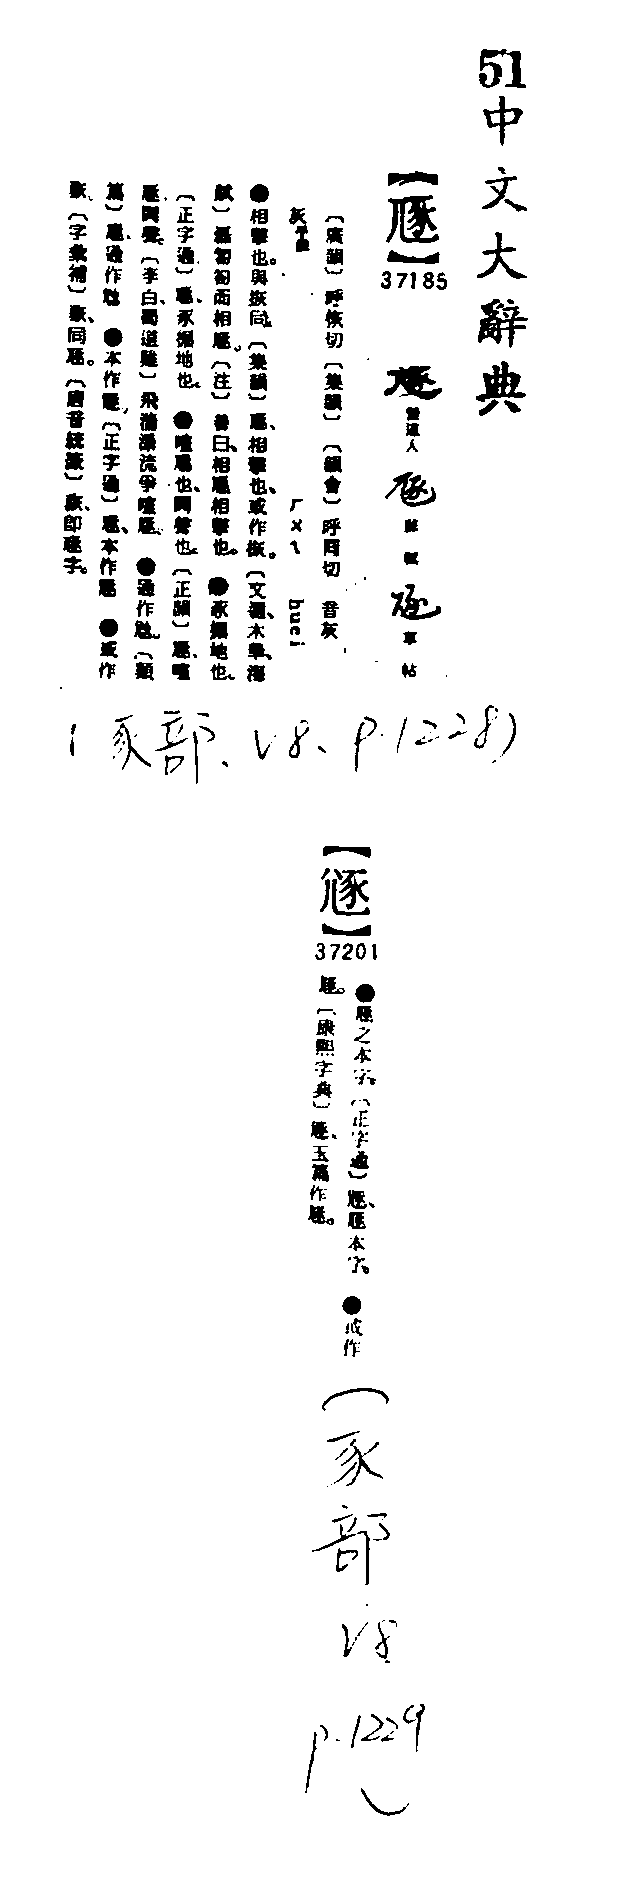 51中文大辭典
【豗】
37185
草帖
〔廣韻〕呼恢切〔集韻〕〔韻會〕呼回切 音灰
灰平聲
ㄏㄨㄟ huei
相擊也。與㧑同。〔集韻〕豗、相擊也、或作㧑。〔文選、木華、海
賦〕磊匒匌而相豗。〔注〕善曰、相豗相擊也。豕掘地也。
〔正字通〕豗、豕掘地也。喧豗也、鬨聲也。〔正韻〕豗、喧
豗鬨聲。〔李白蜀道難〕飛湍瀑流爭喧豗。通作虺。〔類
篇〕豗、通作虺。本作豗。〔正字通〕豗、本作豗。或作
〔字彙補〕同豗。〔唐音統籤〕即豗字。
(豕部、V8、P.1228)
37201
豗之本字。〔正字通〕豗本字。或作
豗。〔康熙字典〕豗、玉篇作豗。
(豕部 V8 p.1229)